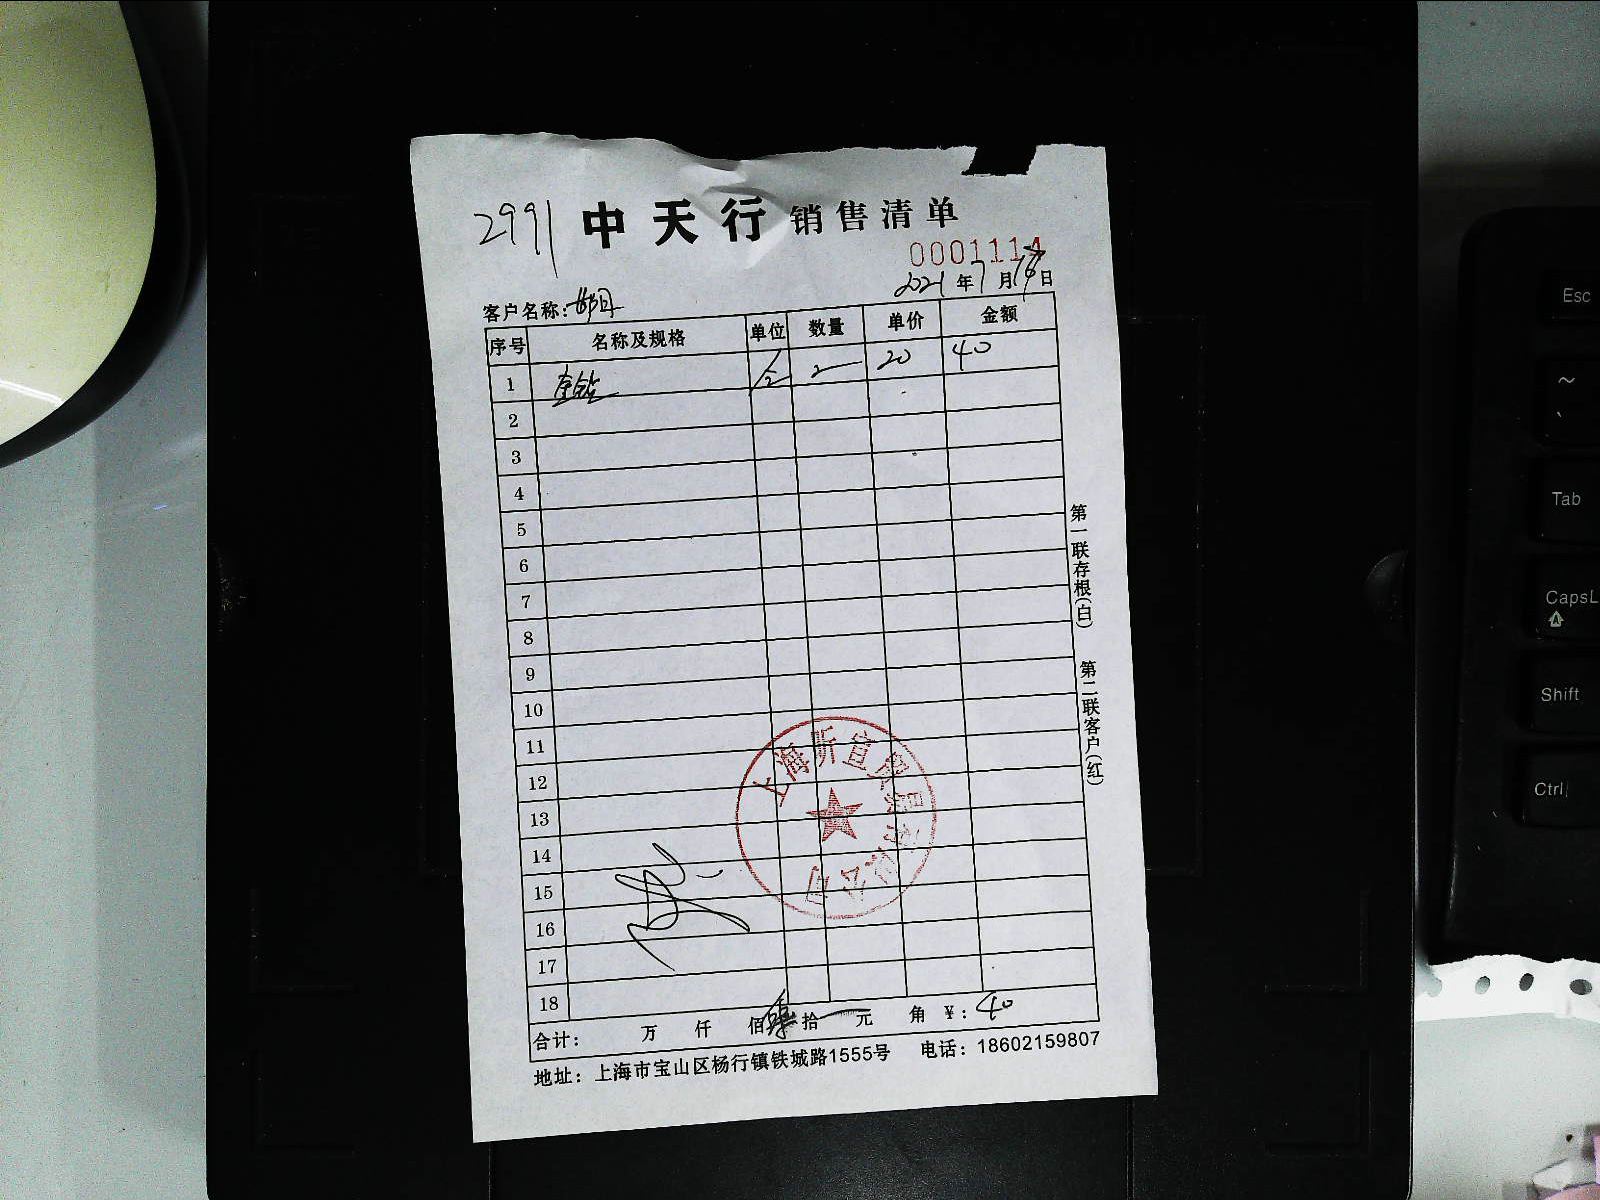 2991 中天行 销售清单
0001114
2021 年 7 月 16 日
客户名称:
序号 名称及规格 单位 数量 单价 金额
1 套钻 2 20 40
2
3
4
5
6
7
8
9
10
11
12
13
14
15
16
17
18
合计: 万 仟 佰 肆 拾 元 角 ¥: 40
地址: 上海市宝山区杨行镇铁城路1555号 电话: 18602159807
第一联存根(白) 第二联客户(红)
上海昕宜贸易有限公司
Esc
~
`
Tab
CapsL
Shift
Ctrl